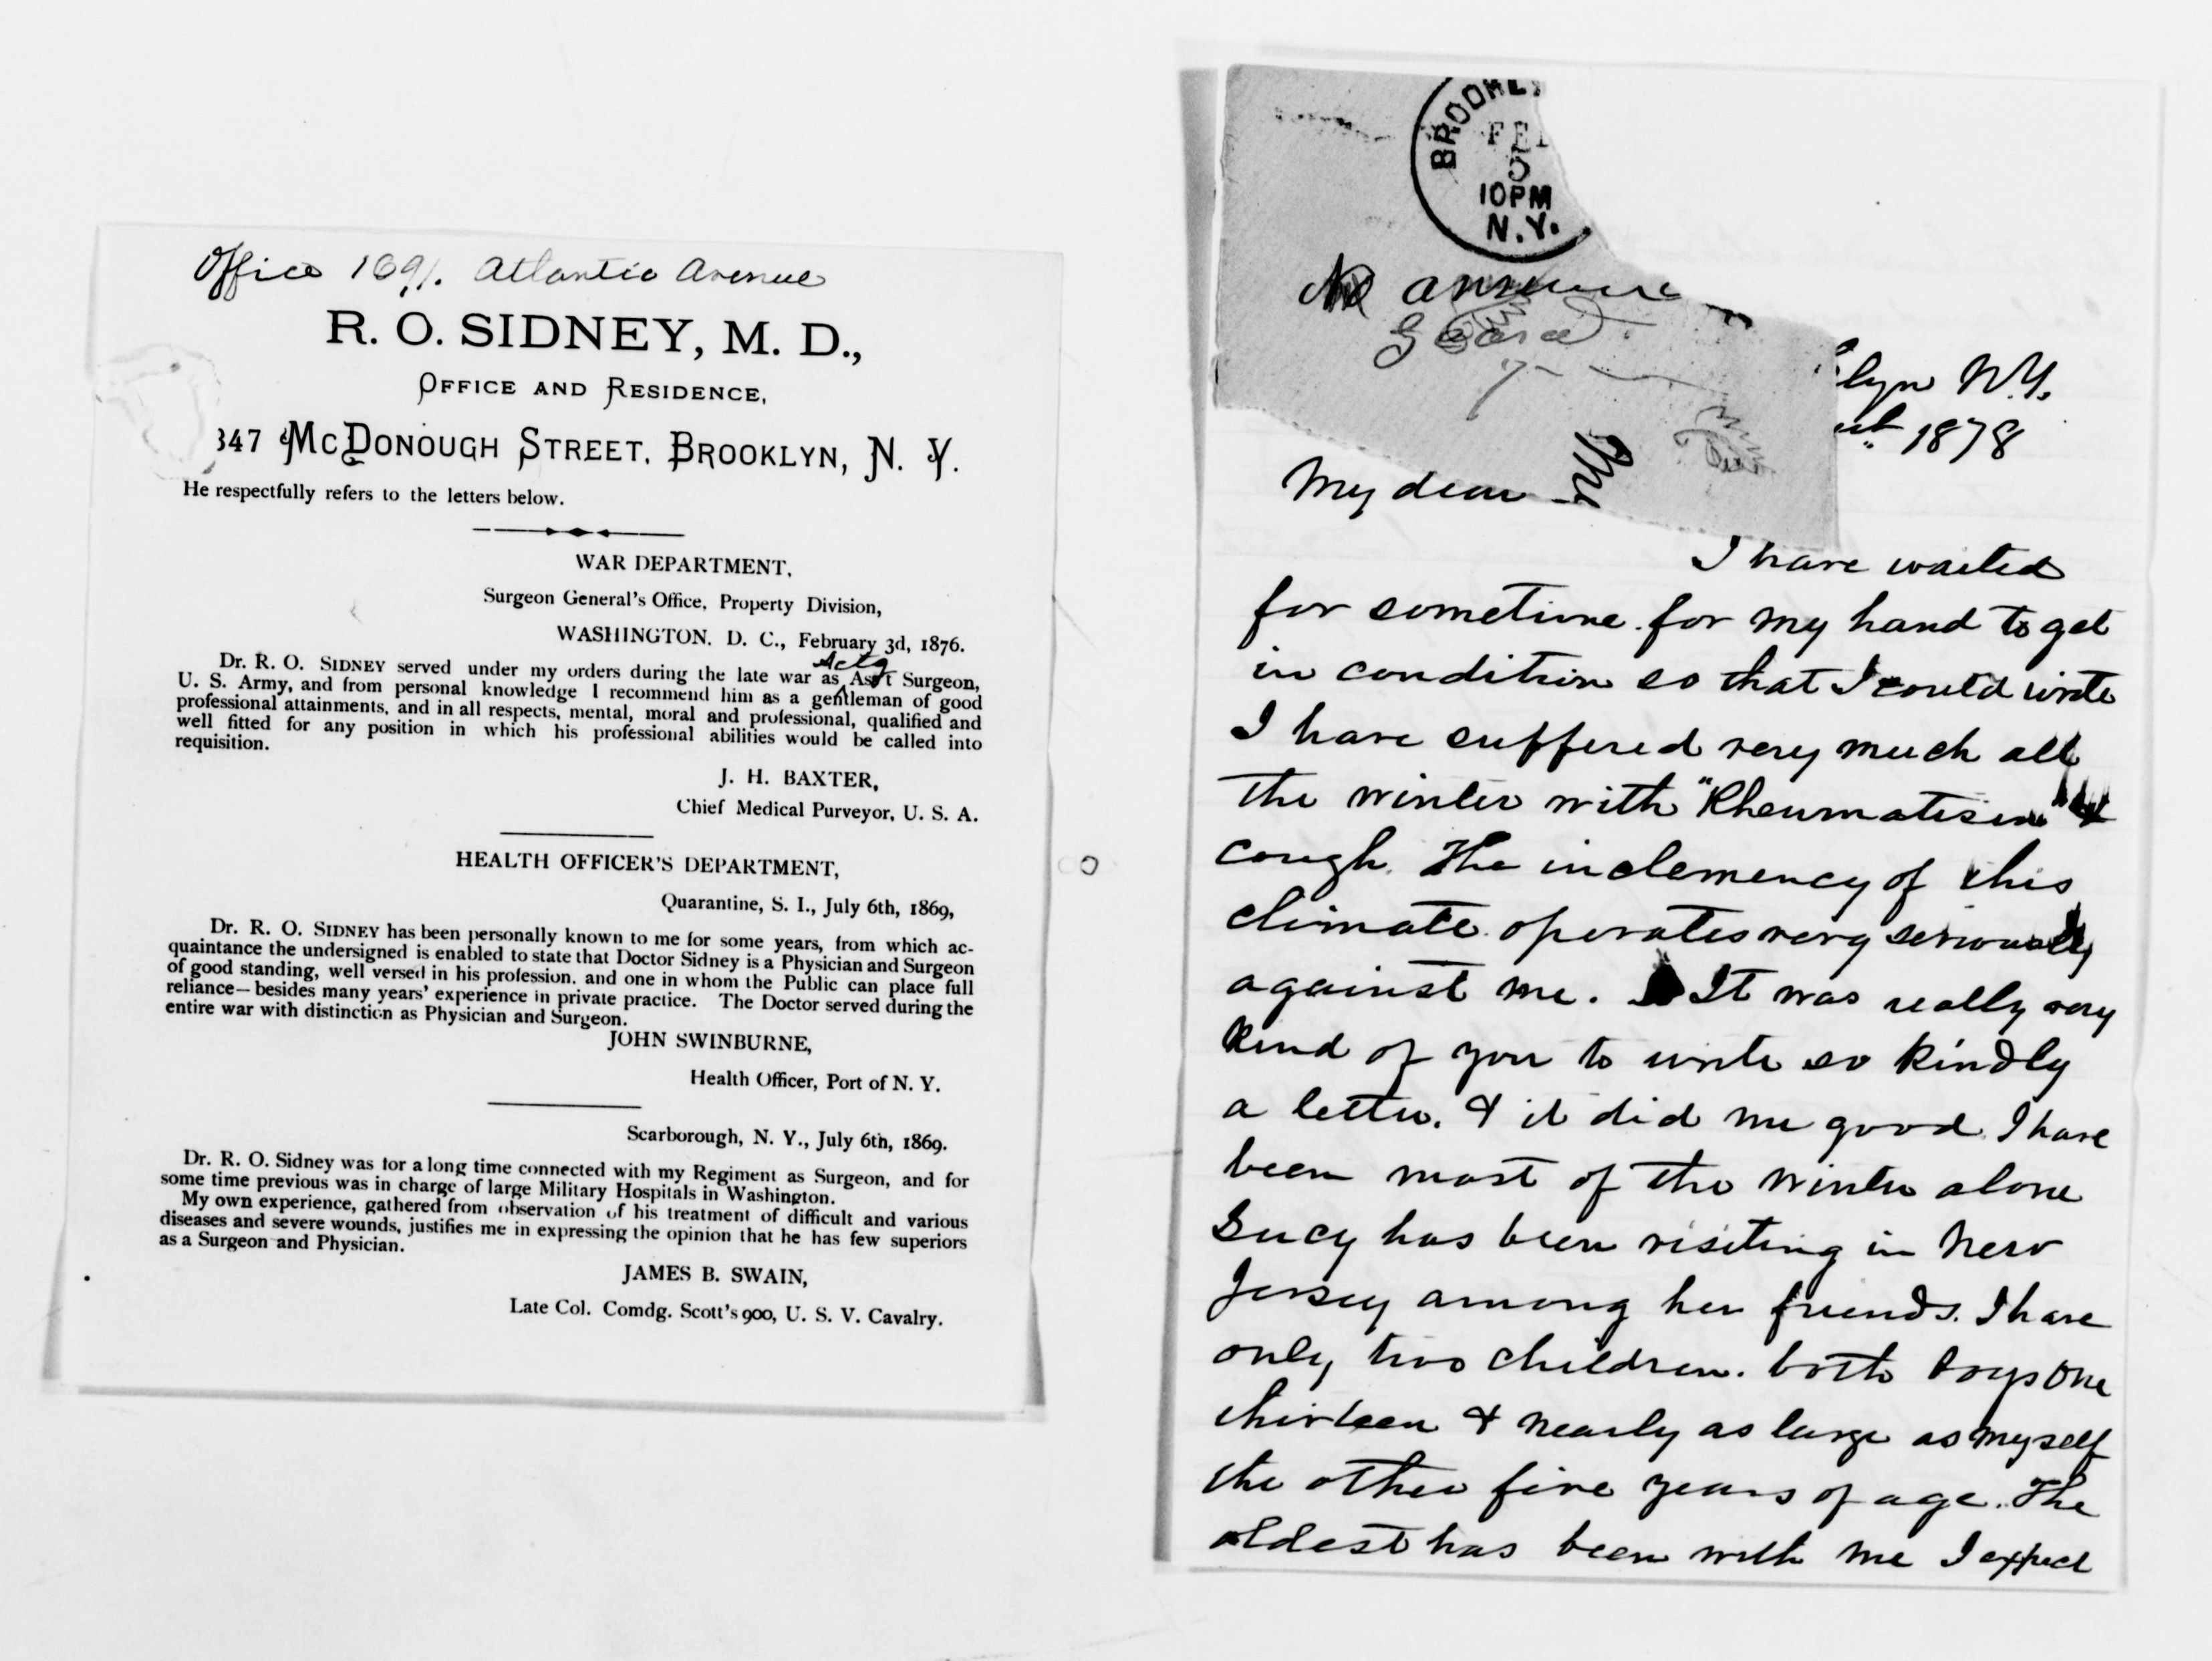 Office 1691. Atlantic Avenue
R. O. SIDNEY, M. D.,
OFFICE AND RESIDENCE,
347 McDONOUGH STREET, BROOKLYN, N. Y.
He respectfully refers to the letters below.
WAR DEPARTMENT,
Surgeon General's Office, Property Division,
WASHINGTON. D. C., February 3d, 1876.
Dr. R. O. SIDNEY served under my orders during the late war as Actg Ass't Surgeon,
U. S. Army, and from personal knowledge I recommend him as a gentleman of good
professional attainments, and in all respects, mental, moral and professional, qualified and
well fitted for any position in which his professional abilities would be called into
requisition.
J. H. BAXTER,
Chief Medical Purveyor, U. S. A.
HEALTH OFFICER'S DEPARTMENT,
Quarantine, S. I., July 6th, 1869,
Dr. R. O. SIDNEY has been personally known to me for some years, from which ac-
quaintance the undersigned is enabled to state that Doctor Sidney is a Physician and Surgeon
of good standing, well versed in his profession. and one in whom the Public can place full
reliance—besides many years' experience in private practice. The Doctor served during the
entire war with distinction as Physician and Surgeon.
JOHN SWINBURNE,
Health Officer, Port of N. Y.
Scarborough, N. Y., July 6th, 1869.
Dr. R. O. Sidney was for a long time connected with my Regiment as Surgeon, and for
some time previous was in charge of large Military Hospitals in Washington.
My own experience, gathered from observation of his treatment of difficult and various
diseases and severe wounds, justifies me in expressing the opinion that he has few superiors
as a Surgeon and Physician.
JAMES B. SWAIN,
Late Col. Comdg. Scott's 900, U. S. V. Cavalry.
BROOKLY
FEB
5
10PM
N.Y.
No
lyn N.Y.
1878
My dear
I have waited
for sometime. for my hand to get
in condition so that I could write
I have suffered very much all
the winter with "Rheumatism" &
cough. The inclemency of this
climate. operates very seriously
against me. It was really very
kind of you to write so kindly
a letter. & it did me good. I have
been most of the winter alone
Lucy has been visiting in New
Jersey among her friends. I have
only two children. both boys one
thirteen & nearly as large as myself
the other five years of age. The
oldest has been with me I expect